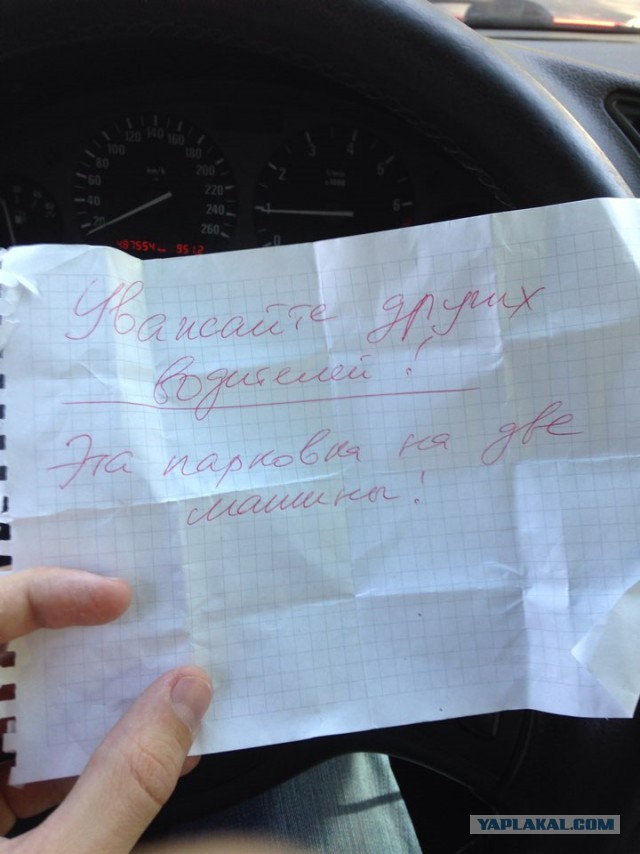 20 40 60 80 100 120 140 160 180 200 220 240 260
km/h
0 1 2 3 4 5 6
487554 951.2
Уважайте других
водителей!
Эта парковка на две
машины!
YAPLAKAL.COM